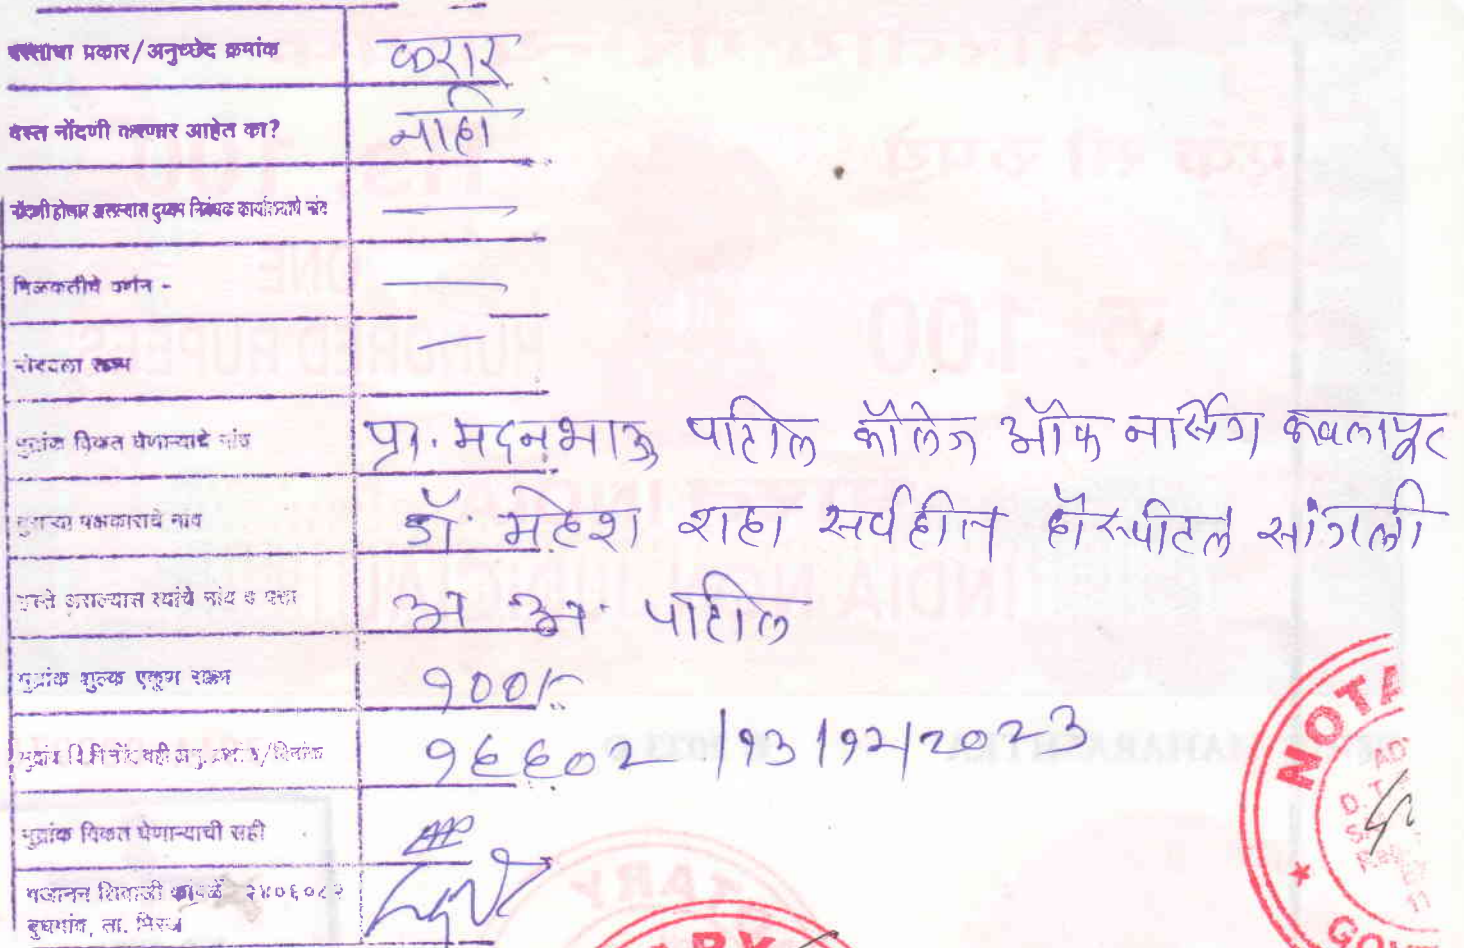 दस्ताचा प्रकार/अनुच्छेद क्रमांक करार
दस्त नोंदणी करणार आहेत का? नाही
नोंदणी होणार असल्यास दुय्यम निबंधक कार्यालयाचे नांव —
मिळकतीचे वर्णन - —
मोबदला रक्कम —
मुद्रांक विकत घेणाऱ्याचे नांव प्रा. मदनभाऊ पाटील कॉलेज ऑफ नर्सिंग कवलापूर
दुसऱ्या पक्षकाराचे नांव डॉ. महेश शहा सर्वहीत हॉस्पीटल सांगली
हस्ते असल्यास त्यांचे नांव व पत्ता अ. अ. पाटील
मुद्रांक शुल्क एकूण रक्कम १००/-
१६६०२/१३/१२/२०२३
मुद्रांक विकत घेणाऱ्याची सही
गजानन शिवाजी कांबळे २४०६०८२
बुधगांव, ता. मिरज
NOTA
AD
D. T.
GO
ARY